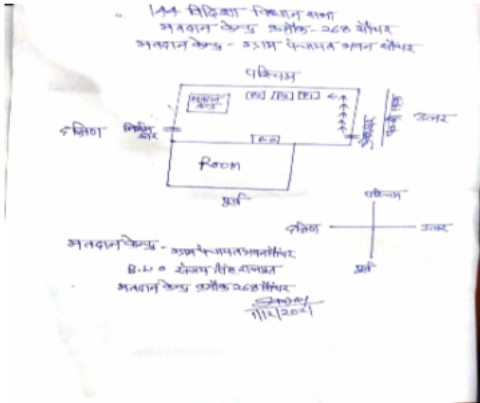 144 विदिशा विधान सभा
मतदान केन्द्र क्रमांक - 268 सौंथर
मतदान केन्द्र - ग्राम पंचायत भवन सौंथर
पश्चिम
मतदान
P3 P2 P1
दक्षिण
द्वार
उत्तर
P.O
Room
पूर्व
पश्चिम
दक्षिण
उत्तर
पूर्व
मतदान केन्द्र - ग्राम पंचायत भवन सौंथर
B.L.O संजय सिंह राजपूत
मतदान केन्द्र क्रमांक 268 सौंथर
Sanjay
1/12/2021